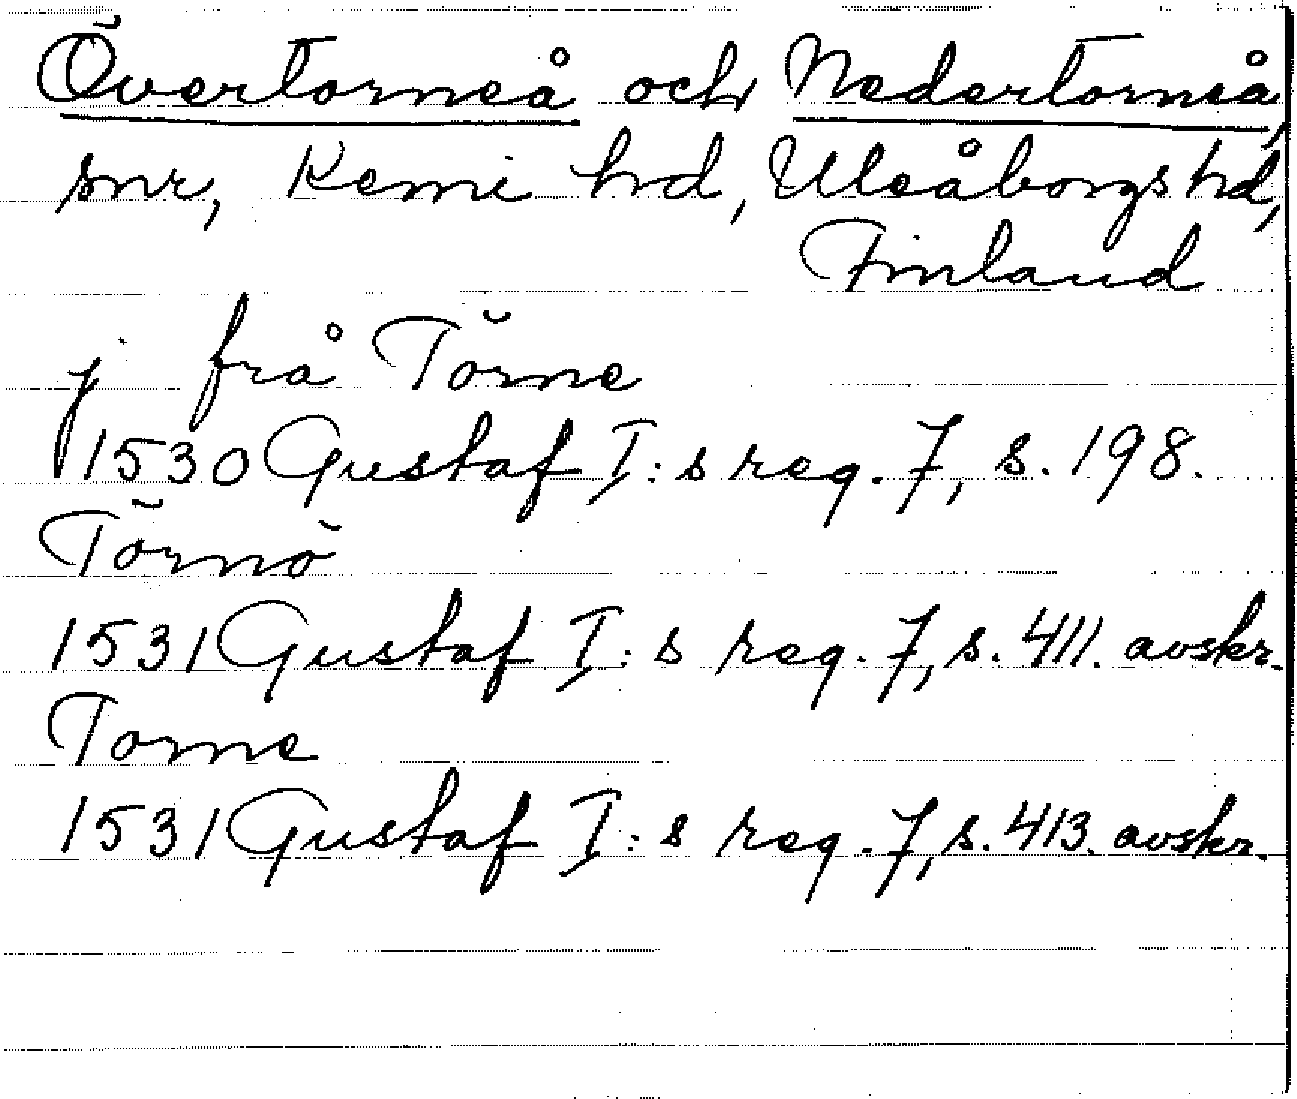 Övertorneå och Nedertorneå,
snr, Kemi hrd, Uleåborgs hd,
Finland
j frå Törne
1530 Gustaf I:s reg. 7, s. 198.
Törnö
1531 Gustaf I:s reg. 7, s. 411. avskr.
Torne
1531 Gustaf I:s reg. 7, s. 413. avskr.